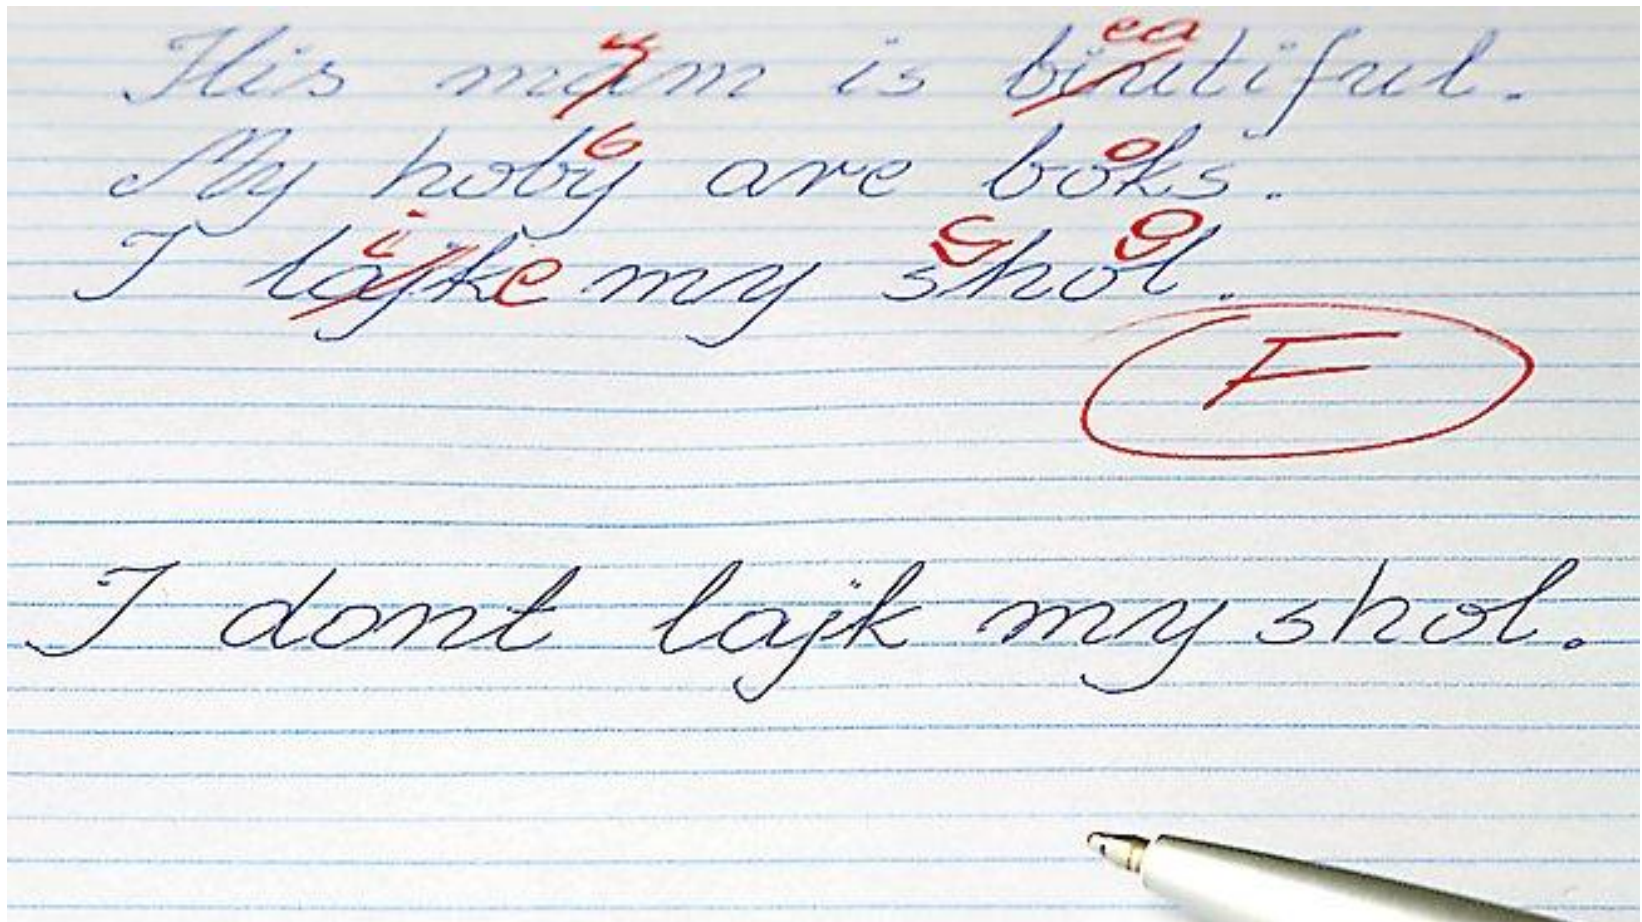 ea
His mam is biutiful.
b o
My hoby are boks.
i c o
I lajke my shol.
F
I dont lajk my shol.